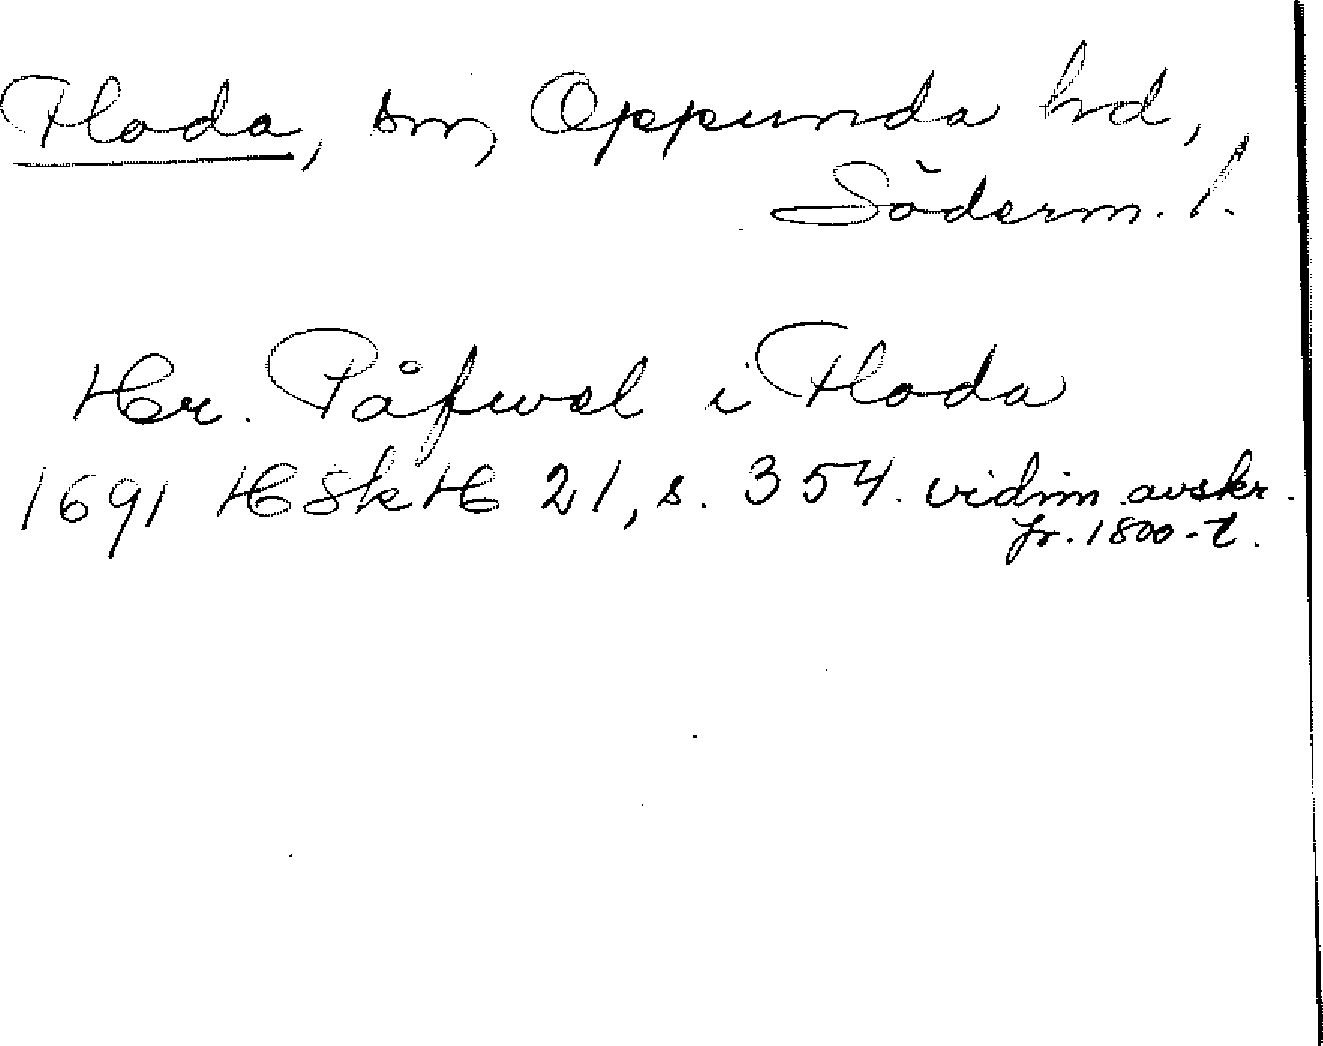 Floda, sn, Oppunda hd,
Söderm. l.
Hr. Påfwel i Floda
1691 HSkH 21, s. 354. vidim avskr.
fr. 1800-t.